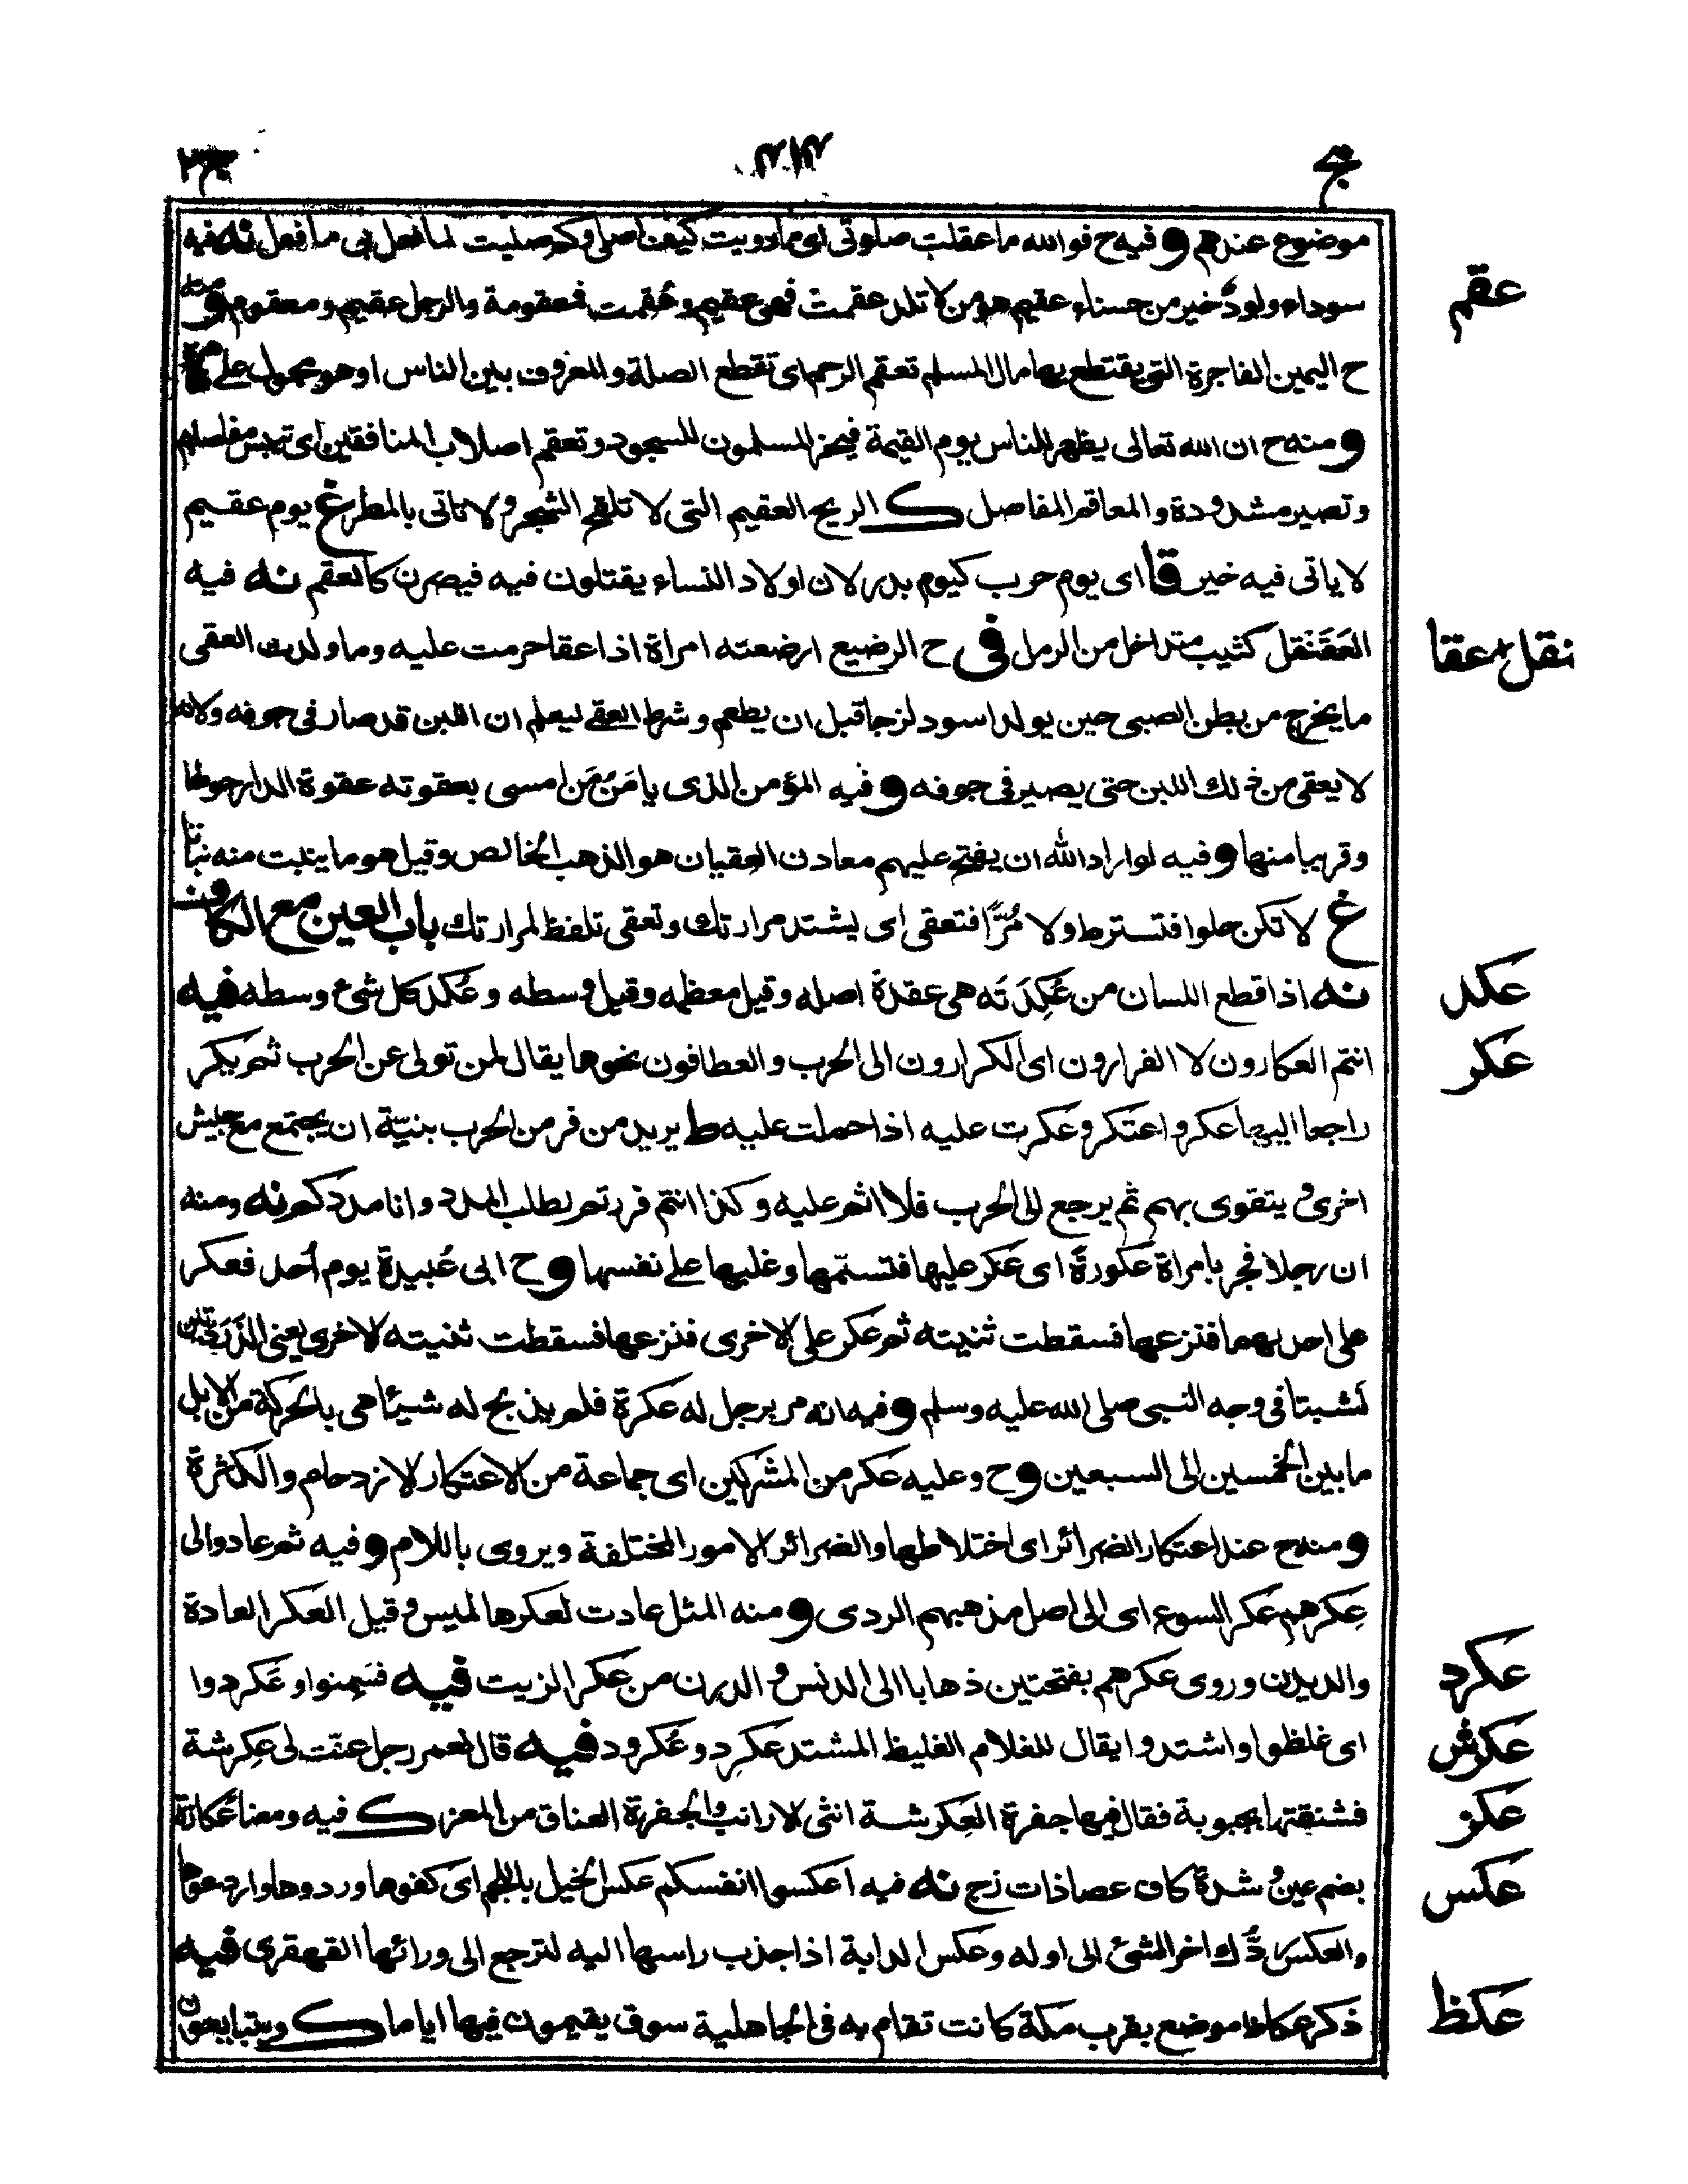 موضوع عندهم و فيه ح فوالله ما عقلت صلوتى اى ما دريت كيف اصلى وكم صليت لما فعل بى ما فعل نه فيه
عقم
سوداء ولود خير من حسناء عقيم هو من لا تلد عقمت فهى عقيم وعُقمت فمعقومة والرجل عقيم ومعقوم ومنه
ح اليمين الفاجرة التى يقتطع بها مال المسلم تعقم الرحم اى تقطع الصلة والمعروف بين الناس او هو محمول على
و منه ح ان الله تعالى يظهر للناس يوم القيمة فيخر المسلمون للسجود وتعقم اصلاب المنافقين اى تيبس مفاصلهم
وتصير مشدودة والمعاقم المفاصل ك الريح العقيم التى لا تلقح الشجر ولا تاتى بالمطر غ يوم عقيم
لا ياتى فيه خير قا اى يوم حرب كيوم بدر لان اولاد النساء يقتلون فيه فيصرن كالعقم نه فيه
نقل عقا
العَقَنْقل كثيب متداخل من الرمل فى ح الرضيع ارضعته امراة اذا عقا حرمت عليه وما ولدت العقى
ما يخرج من بطن الصبى حين يولد اسود لزجا قبل ان يطعم وشرط العقى ليعلم ان اللبن قد صار فى جوفه ولانه
لا يعقى من ذلك اللبن حتى يصير فى جوفه و فيه المؤمن الذى يامَن مَن امسى بعقوته عقوة الدار حولها
وقريبا منها و فيه لو اراد الله ان يفتح عليهم معادن العِقيان هو الذهب الخالص وقيل هو ما ينبت منه نباتا
غ لا تكن حلوا فتسترط ولا مُرًّا فتعقى اى يشتد مرارتك وتعقى تلفظ لمرارتك باب العين مع الكاف
عكد
نه اذا قطع اللسان من عُكِدَته هى عقدة اصله وقيل معظمه وقيل وسطه وعُكد كل شئ وسطه فيه
عكر
انتم العكارون لا الفرارون اى الكرارون الى الحرب والعطافون نحوها يقال لمن تولى عن الحرب ثم يكر
راجعا اليها عكر واعتكر وعكرت عليه اذا حملت عليه ط يريد من فر من الحرب بنيّة ان يجتمع مع جيش
اخرى ويتقوى بهم ثم يرجع الى الحرب فلا اثم عليه وكذا انتم فررتم لطلب المدد وانا مددكم نه ومنه
ان رجلا فجر بامراة عكورةً اى عَكر عليها فتسنّمها وغلبها على نفسها و ح ابى عُبيدة يوم اُحد فعكر
على احديهما فنزعها فسقطت ثنيته ثم عكر على الاخرى فنزعها فسقطت ثنيته الاخرى يعنى الزرَدَتين
نشبتا فى وجه النبى صلى الله عليه وسلم و فيه انه مر برجل له عَكرة فلم يذبح له شيئا هى بالحركة من الابل
ما بين الخمسين الى السبعين و ح وعليه عكر من المشركين اى جماعة من الاعتكار الازدحام والكثرة
و منه ح عند اعتكار الضرائر اى اختلاطها والضرائر الامور المختلفة ويروى باللام و فيه ثم عادوا الى
عِكرهم عكر السوء اى الى اصل مذهبهم الردى و منه المثل عادت لعكرها لميس وقيل العكر العادة
عكرد
والديدن وروى عكرهم بفتحتين ذهابا الى الدنس والدرن من عكر الزيت فيه فسَمِنوا وعَكردوا
عكرش
اى غلظوا واشتدوا يقال للغلام الغليظ المشتد عكرِد وعُكرود فيه قال لعمر رجل عنّت لى عِكرشة
عكز
فشنقتها بجبوبة فقال فيها جفرة العِكرشة انثى الارانب والجفرة العناق من المعز ك فيه ومعنا عُكازة
عكس
بضم عين وشدة كاف عصا ذات زج نه فيه اعكسوا انفسكم عكس الخيل باللجم اى كفوها وردوها وارجعوها
والعكس رَدُّك اخر الشئ الى اوله وعكس الدابة اذا جذب راسها اليه لترجع الى ورائها القهقرى فيه
عكظ
ذكر عكاظ موضع بقرب مكة كانت تقام به فى الجاهلية سوق يقيمون فيها اياما ك ويتبايعون